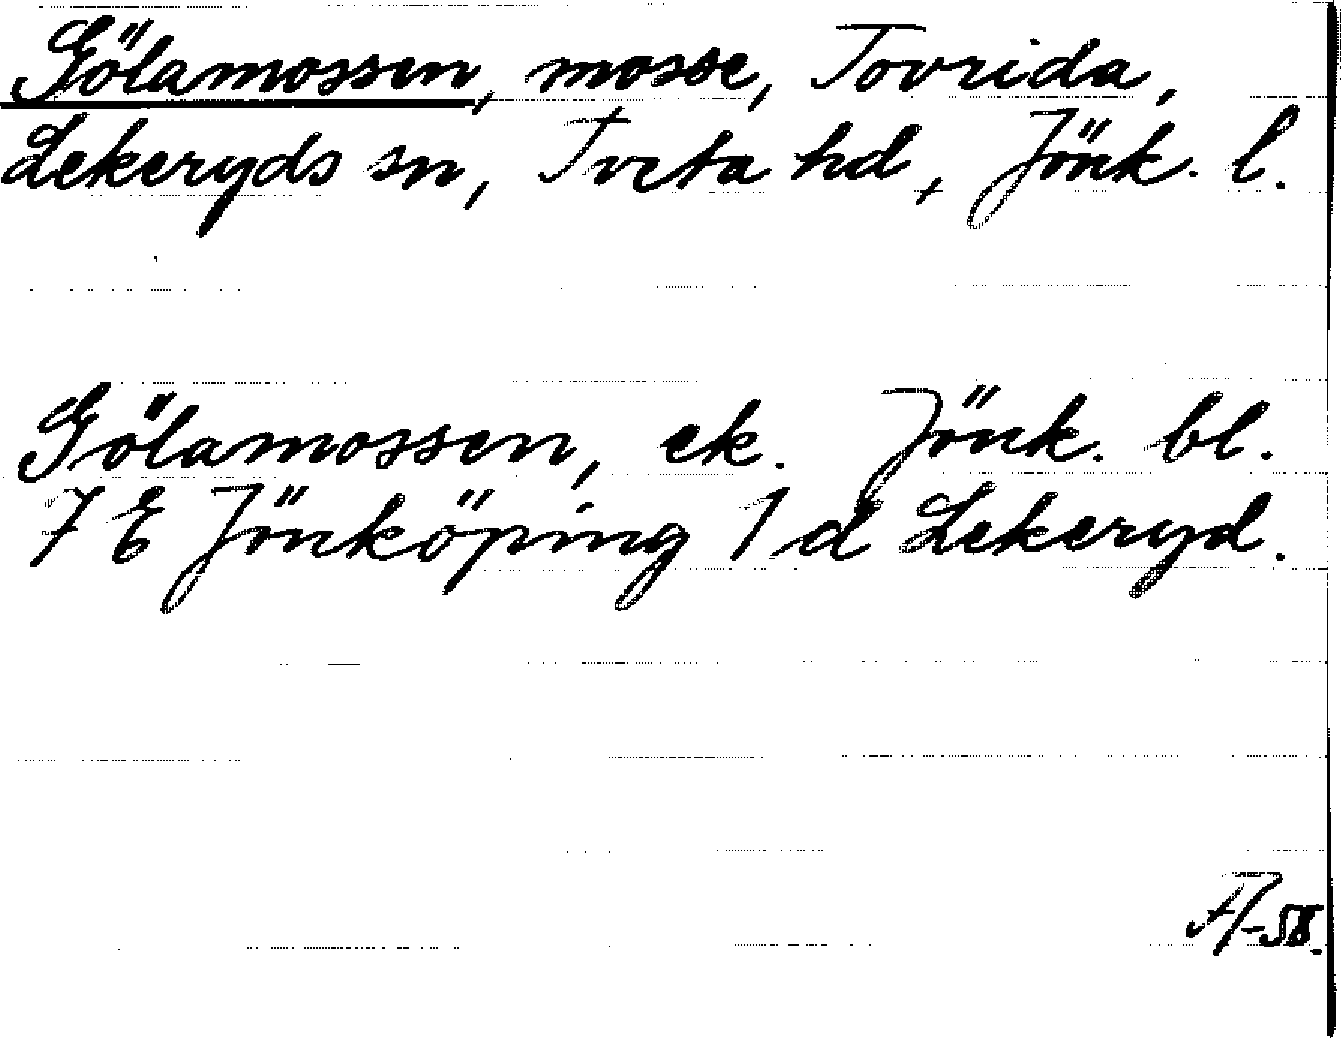 Gölamossen, mosse, Tovrida,
Lekeryds sn, Tveta hd, Jönk. l.
Gölamossen, ek. Jönk. bl.
7 E Jönköping 1 d Lekeryd.
-58.